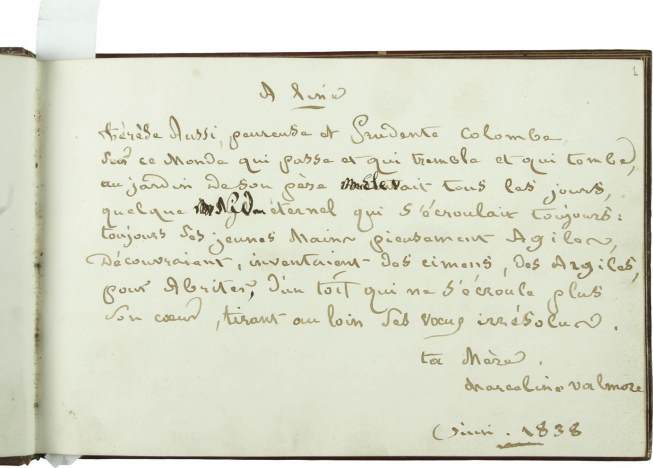 A Line
thérèse Aussi, peureuse et Prudente Colombe,
Sur ce Monde qui passe et qui tremble et qui tombe,
au jardin De son père élevait tous les jours,
quelque Nid éternel qui s'écroulait toujours:
toujours Ses jeunes Mains pieusement Agiles,
Découvraient, inventaient des cimens, des Argiles,
pour Abriter, D'un toît qui ne s'écroule plus
Son cœur, tirant au loin Ses vœux irrésolus.
ta Mère.
Marceline Valmore
1838